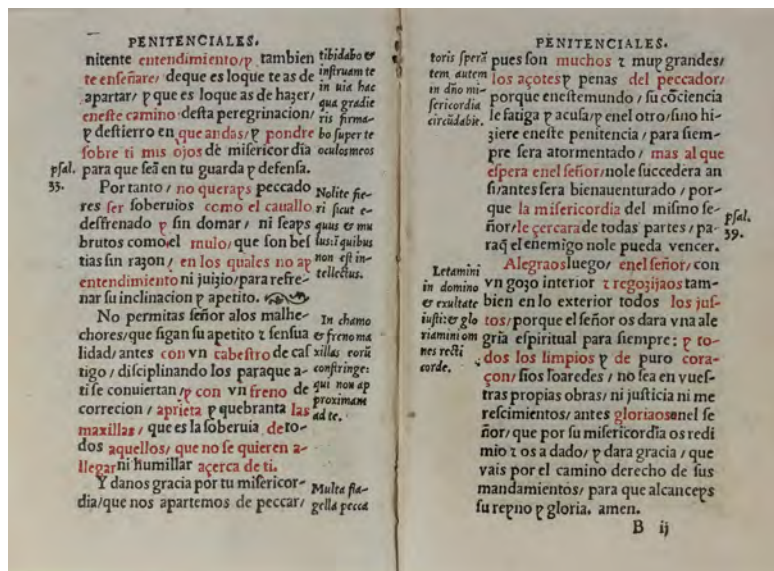 PENITENCIALES.
nitente entendimiento/ y tambien
te enseñare/ deque es loque te as de
apartar/ y que es loque as de hazer/
eneste camino desta peregrinacion/
y destierro en que andas/ y pondre
sobre ti mis ojos de misericordia
para que seã en tu guarda y defensa.
Por tanto / no querays peccado
res ser soberuios como el cauallo
desfrenado y sin domar / ni seays
brutos como el mulo/ que son bes
tias sin razon / en los quales no ay
entendimiento ni juizio/ para refre-
nar su inclinacion y apetito.
No permitas señor alos malhe-
chores/ que sigan su apetito ꝛ sensua
lidad/ antes con vn cabestro de cas
tigo / disciplinando los paraque a-
ti se conuiertan / y con vn freno de
correcion / aprieta y quebranta las
maxillas / que es la soberuia de to-
dos aquellos/ que no se quieren a-
llegar ni humillar açerca de ti.
Y danos gracia por tu misericor-
dia/ que nos apartemos de peccar/
psal.
33.
tibidabo &
instruam te
in uia hac
qua gradie
ris firma-
bo super te
oculos meos
Nolite fie-
ri sicut e-
quus & mu
lus: ĩ quibus
non est in-
tellectus.
In chamo
& freno ma
xillas eorũ
constringe:
qui non ap
proximant
ad te.
Multa fla-
gella pecca
PENITENCIALES.
pues son muchos ꝛ muy grandes/
los açotes y penas del peccador/
porque enestemundo / su cõciencia
le fatiga y acusa/ y enel otro/ sino hi-
ziere eneste penitencia / para siem-
pre sera atormentado / mas al que
espera enel señor/ nole succedera an
si/ antes sera bienauenturado / por-
que la misericordia del mismo se-
ñor/ le çercara de todas partes / pa-
raq̃ el enemigo nole pueda vencer.
Alegraos luego/ enel señor/ con
vn gozo interior ꝛ regozijaos tam-
bien en lo exterior todos los jus-
tos/ porque el señor os dara vna ale
gria espiritual para siempre: y to-
dos los limpios y de puro cora-
çon/ si os loaredes / no sea en vues-
tras propias obras/ ni justicia ni me
rescimientos/ antes gloriaos enel se
ñor/ que por su misericordia os redi
mio ꝛ os a dado/ y dara gracia / que
vais por el camino derecho de sus
mandamientos/ para que alcanceys
su reyno y gloria. amen.
toris sperã
tem autem
in dño mi-
sericordia
circũdabit.
psal.
39.
Letamini
in domino
& exultate
iusti: & glo
riamini om
nes recti
corde.
B ij